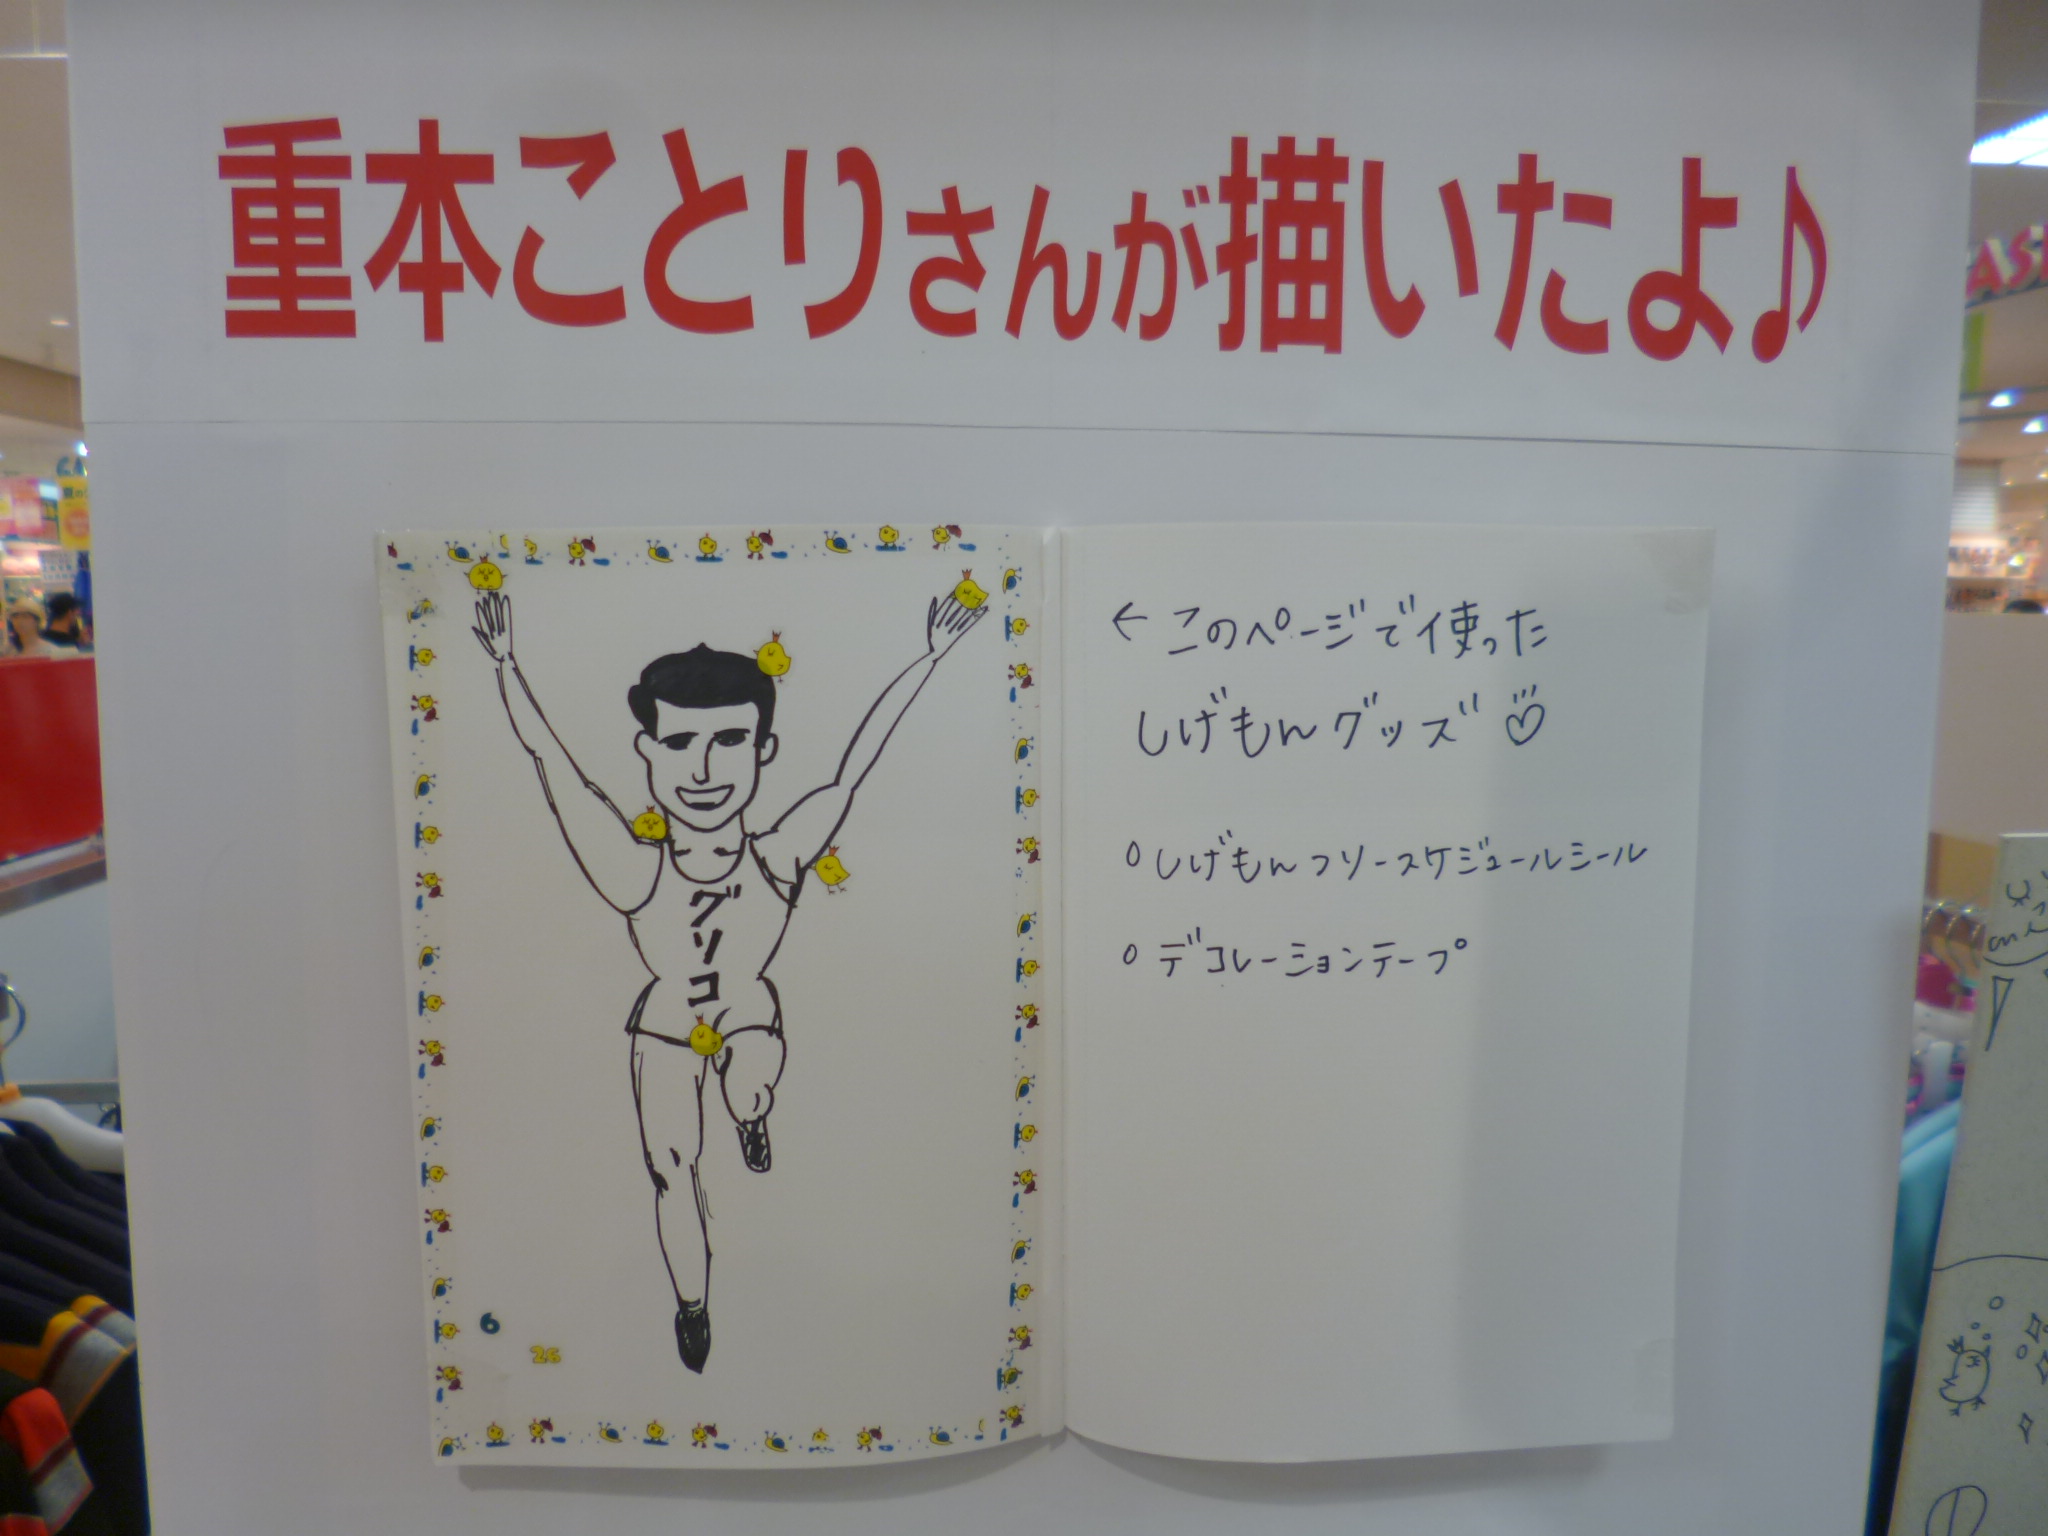 重本ことりさんが描いたよ♪
グリコ
6
26
←このページで使った
しげもんグッズ♡
○しげもんフリースケジュールシール
○デコレーションテープ